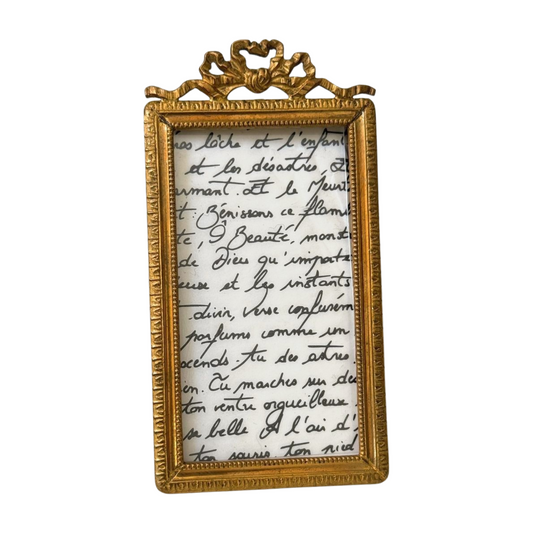 ros lâche et l'enfan
et les désastres, Et
armant. Et le Meurt
t: Bénissons ce flam
te, O Beauté, monst
de Dieu qu'importe
euse et les instants
divin, verse confusém
parfums comme un
scends-tu des astres.
en. Tu marches sur de
ton ventre orgueilleux
se belle A l'air d'
ton souris ton pied